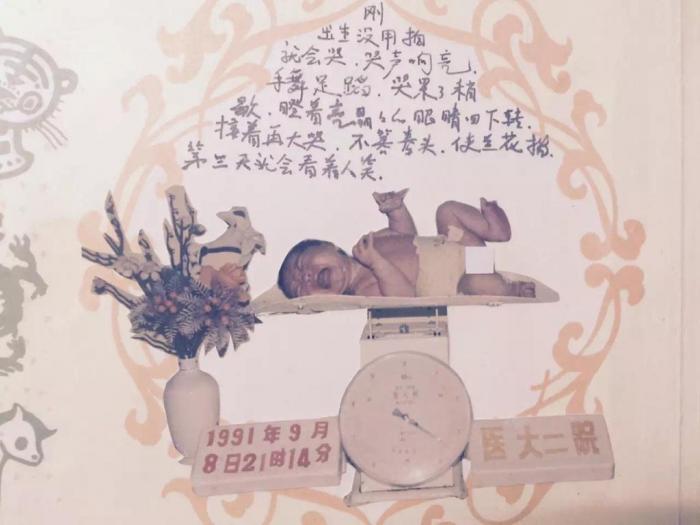 刚
出生没用拍
就会哭,哭声响亮,
手舞足蹈,哭累了稍
歇,瞪着亮晶晶眼睛四下转,
接着再大哭,不攥拳头,使兰花指,
第三天就会看着人笑.
1991年9月
8日21时14分
医大二院